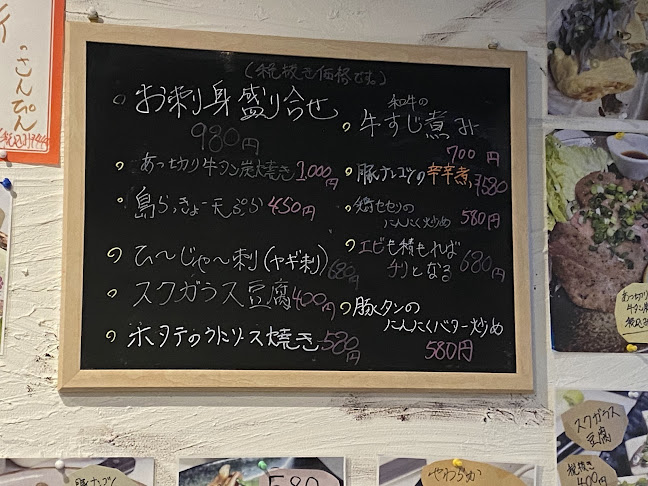 さんぴん
(税抜き価格です。)
お刺身盛り合せ
980円
あつ切り牛タン炭焼き1,000円
島らっきょー天ぷら 450円
ひ〜じゃ〜刺(ヤギ刺)680円
スクガラス豆腐400円
ホタテのウニソース焼き580円
和牛の
牛すじ煮み
700円
豚ナンコツの辛辛煮580円
鶏セセリの
にんにく炒め 580円
エビも積もれば
チリとなる 680円
豚タンの
にんにくバター炒め
580円
あつ切り
牛タン
スクガラス
豆腐
税抜き
400円
豚ナンコツ
580
やわらか